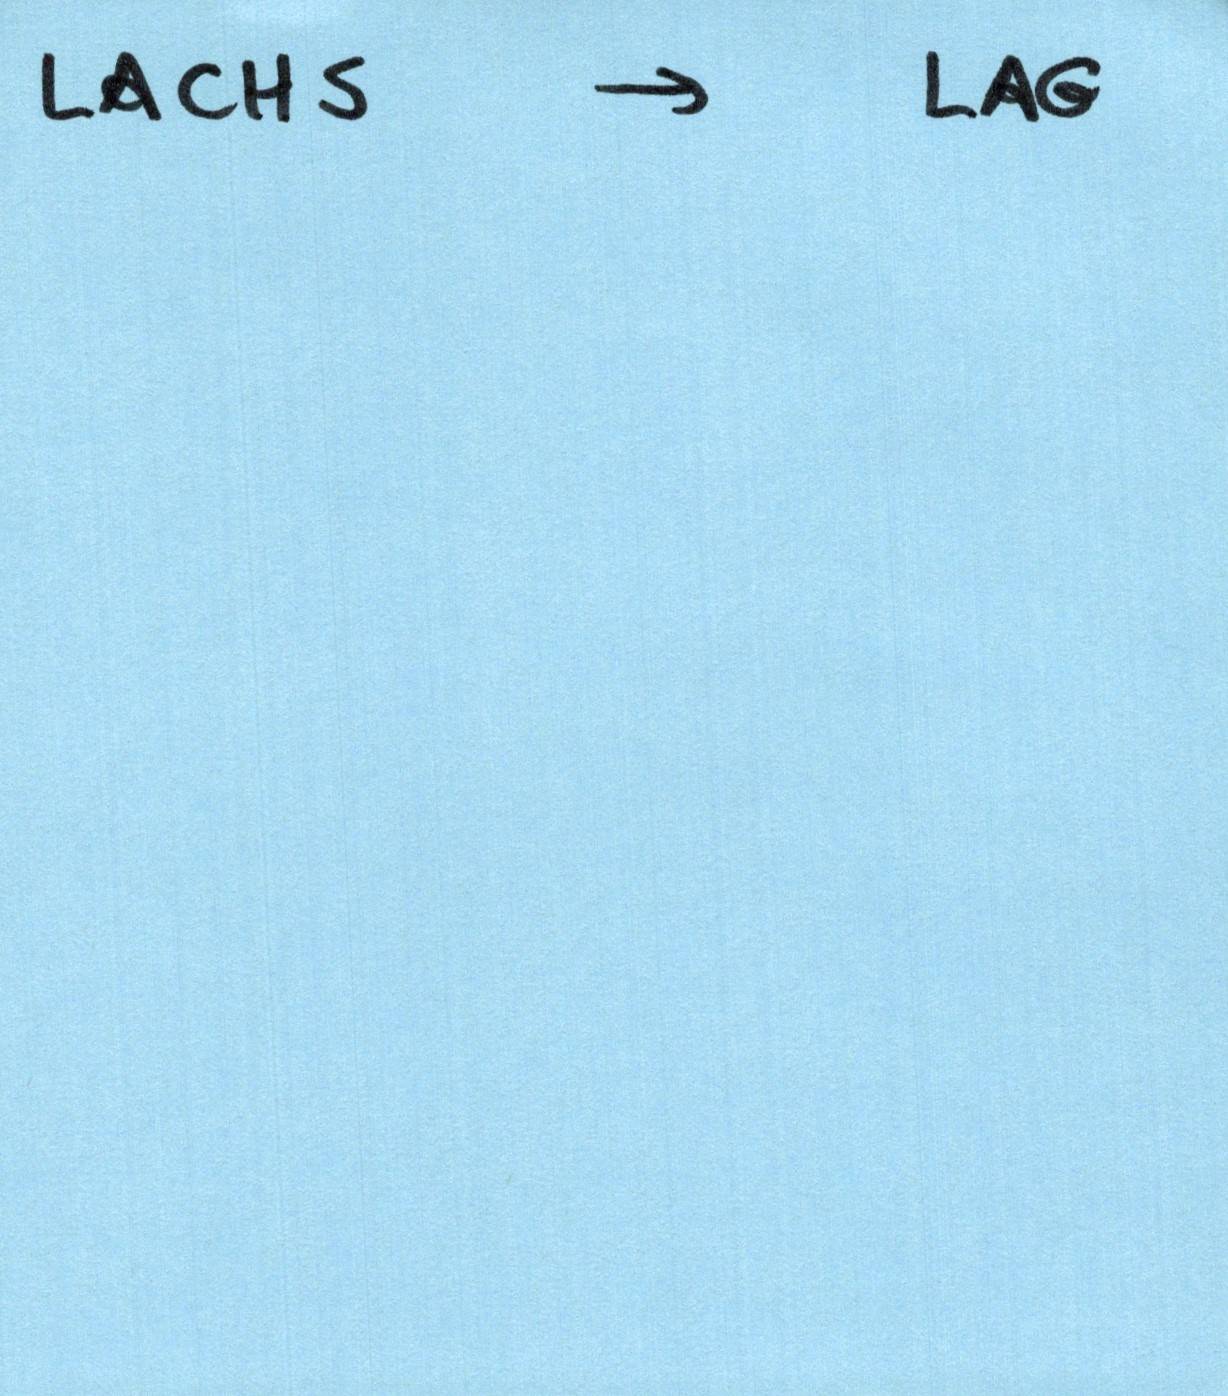 LACHS → LAG